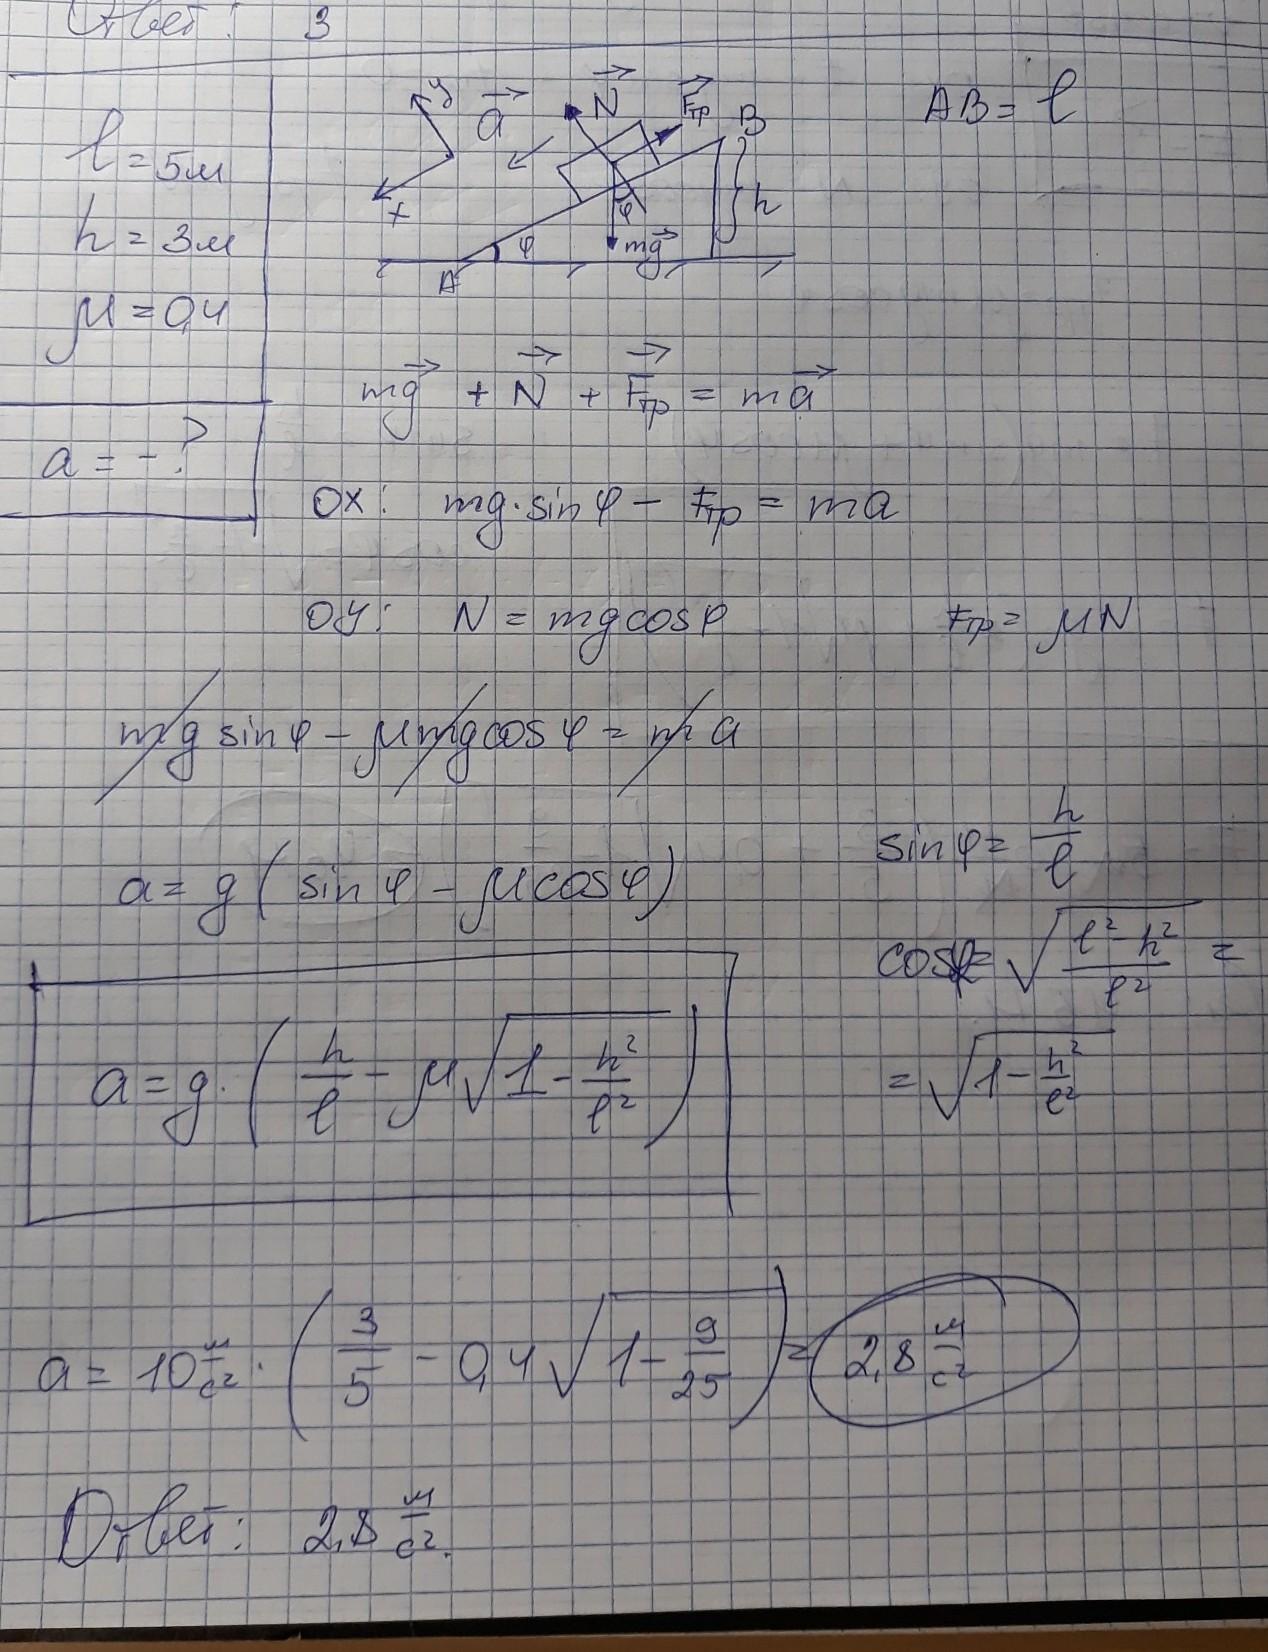 Ответ: 3
l = 5м
h = 3м
μ = 0,4
a = - ?
y
x
a⃗
N⃗
F⃗тр
B
h
φ
mg⃗
φ
A
AB = l
mg⃗ + N⃗ + F⃗тр = ma⃗
OX: mg·sin φ - Fтр = ma
OY: N = mg cos φ Fтр = μN
mg sin φ - μmg cos φ = m a
a = g ( sin φ - μ cos φ )
sin φ = h/l
cos φ = √((l² - h²)/l²) =
= √(1 - h²/l²)
a = g · ( h/l - μ√(1 - h²/l²) )
a = 10 м/с² · ( 3/5 - 0,4 √(1 - 9/25) ) = 2,8 м/с²
Ответ: 2,8 м/с².